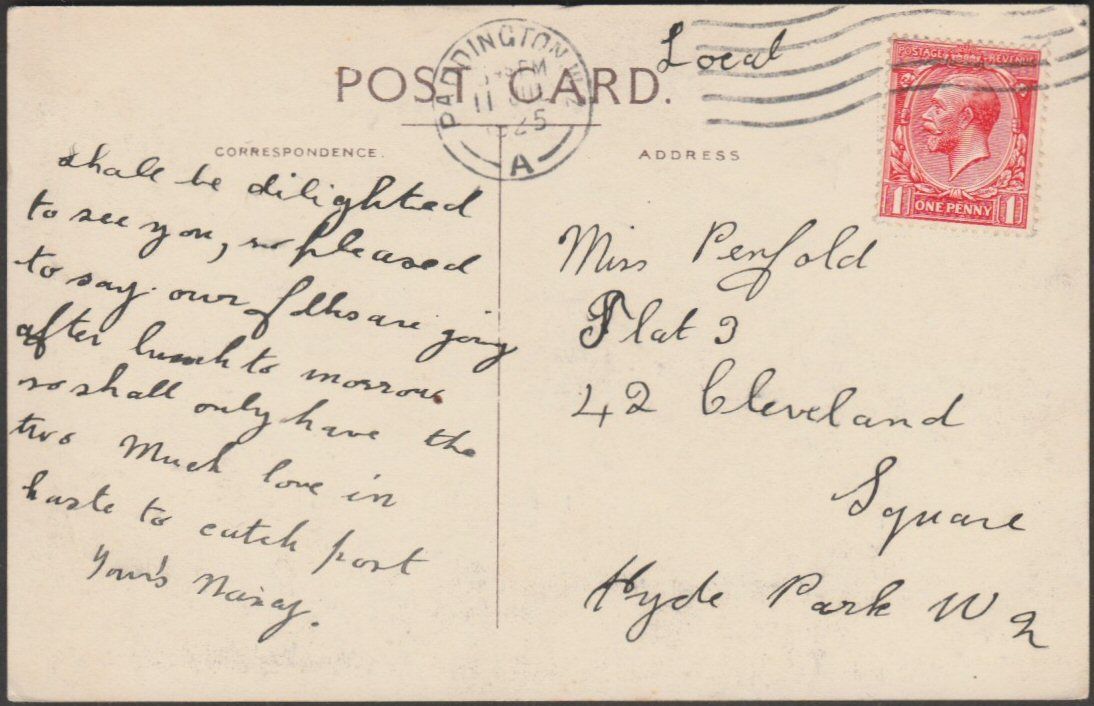 POST CARD.
Local
PADDINGTON W.2
PM
11 JUL
1925
A
POSTAGE REVENUE
1 ONE PENNY 1
CORRESPONDENCE.
ADDRESS
shall be dilighted
to see you, so pleased
to say our folks are going
after lunch to morrow
so shall only have the
two Much love in
haste to catch post
Your's
Miss Penfold
Flat 3
42 Cleveland
Square
Hyde Park W 2